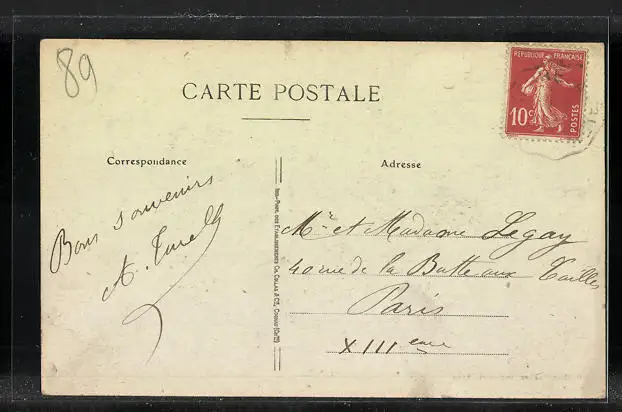 89
CARTE POSTALE
REPUBLIQUE FRANÇAISE
10c
POSTES
Correspondance
Adresse
Bons souvenirs
A.
IMP-PHOT. DES ETABLISSEMENTS CH. COLLAS & Cie, COGNAC (Chte)
Mr et Madame Legay
40 rue de la Butte aux Cailles
Paris
XIIIeme